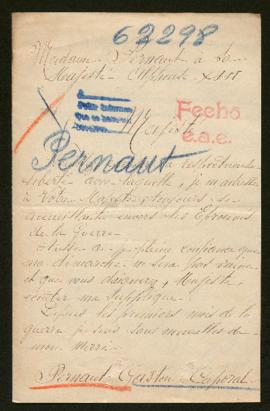 62298
Madame Pernaut à Sa
Majesté Alphonse XIII
Fecho
e.a.e.
Majesté
Pernaut
la respectueuse
liberté avec laquelle, je m'adresse
à Votre Majesté toujours si
envers les
de la Guerre
j'ai pleine confiance que
ma démarche ne sera pas vaine
et que vous daignerez, Majesté,
écouter ma supplique.
Depuis les premiers mois de la
guerre je suis sans nouvelles de
mon
Pernaut Gaston Caporal